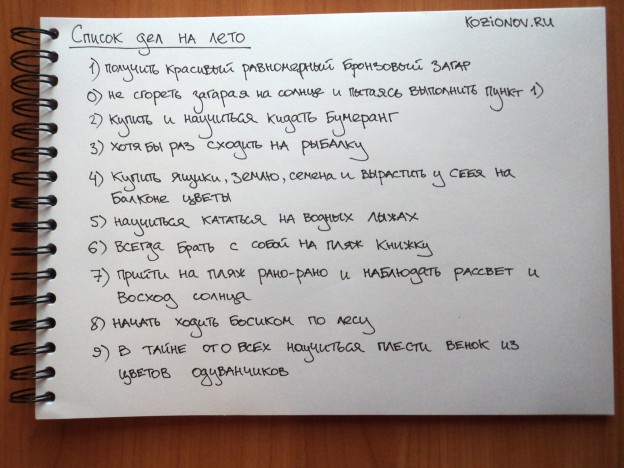 KOZIONOV.RU
Список дел на лето
1) получить красивый равномерный бронзовый загар
0) не сгореть загорая на солнце и пытаясь выполнить пункт 1)
2) купить и научиться кидать бумеранг
3) хотя бы раз сходить на рыбалку
4) купить ящики, землю, семена и вырастить у себя на
балконе цветы
5) научиться кататься на водных лыжах
6) всегда брать с собой на пляж книжку
7) прийти на пляж рано-рано и наблюдать рассвет и
восход солнца
8) начать ходить босиком по лесу
9) в тайне ото всех научиться плести венок из
цветов одуванчиков